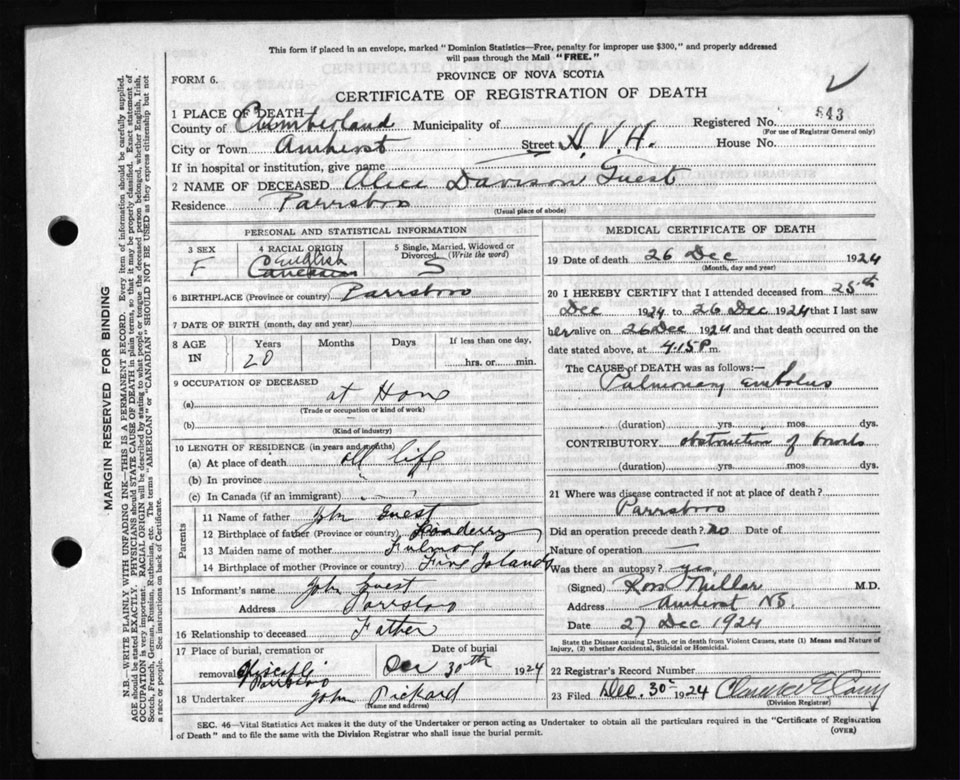 This form if placed in an envelope, marked "Dominion Statistics—Free, penalty for improper use $300," and properly addressed
will pass through the Mail "FREE."
FORM 6.
PROVINCE OF NOVA SCOTIA
CERTIFICATE OF REGISTRATION OF DEATH
1 PLACE OF DEATH—
County of Cumberland Municipality of Registered No. 543
(For use of Registrar General only)
City or Town Amherst Street H. V. H. House No.
If in hospital or institution, give name
2 NAME OF DECEASED Alice Davison Guest
Residence Parrsboro
(Usual place of abode)
PERSONAL AND STATISTICAL INFORMATION
3 SEX F
4 RACIAL ORIGIN English Canadian
5 Single, Married, Widowed or Divorced. (Write the word) S
6 BIRTHPLACE (Province or country) Parrsboro
7 DATE OF BIRTH (month, day and year)
8 AGE IN Years 20 Months Days If less than one day, hrs. or min.
9 OCCUPATION OF DECEASED
(a) at Home
(Trade or occupation or kind of work)
(b)
(Kind of industry)
10 LENGTH OF RESIDENCE (in years and months)
(a) At place of death all life
(b) In province "
(c) In Canada (if an immigrant)
Parents
11 Name of father John Guest
12 Birthplace of father (Province or country)
13 Maiden name of mother Fulmor
14 Birthplace of mother (Province or country) Five Islands
15 Informant's name John Guest
Address Parrsboro
16 Relationship to deceased Father
17 Place of burial, cremation or removal Parrsboro
Date of burial Dec 30th 1924
18 Undertaker John Pickard
(Name and address)
MEDICAL CERTIFICATE OF DEATH
19 Date of death 26 Dec 1924
(Month, day and year)
20 I HEREBY CERTIFY that I attended deceased from 25th
Dec 1924 to 26 Dec 1924 that I last saw
her alive on 26 Dec 1924 and that death occurred on
date stated above, at 4.15 P m.
The CAUSE of DEATH was as follows:—
Pulmonary Embolus
(duration) yrs. mos. dys.
CONTRIBUTORY obstruction of bowels
(duration) yrs. mos. dys.
21 Where was disease contracted if not at place of death?
Parrsboro
Did an operation precede death? no Date of
Nature of operation —
Was there an autopsy? yes
(Signed) Ross Millar M.D.
Address Amherst NS.
Date 27 Dec 1924
State the Disease causing Death, or in death from Violent Causes, state (1) Means and Nature of
Injury, (2) whether Accidental, Suicidal or Homicidal.
22 Registrar's Record Number
23 Filed Dec. 30 1924
(Division Registrar)
SEC. 46—Vital Statistics Act makes it the duty of the Undertaker or person acting as Undertaker to obtain all the particulars required in the "Certificate of Registration
of Death" and to file the same with the Division Registrar who shall issue the burial permit.
(OVER)
MARGIN RESERVED FOR BINDING
N.B.—WRITE PLAINLY WITH UNFADING INK—THIS IS A PERMANENT RECORD. Every item of information should be carefully supplied.
AGE should be stated EXACTLY. PHYSICIANS should STATE CAUSE OF DEATH in plain terms, so that it may be properly classified. Exact statement of
OCCUPATION is very important. RACIAL ORIGIN will be described by stating to what people or tongue the deceased person belonged, whether English, Irish,
Scotch, French, German, Russian, Ruthenian, etc. The terms "AMERICAN" or "CANADIAN" SHOULD NOT BE USED as they express citizenship but not
a race or people. See instructions on back of Certificate.